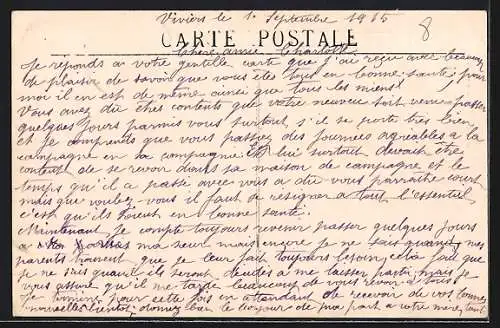 Viviers le 1. Septembre 1915
8
CARTE POSTALE
Chère amie Charlotte
Je reponds a votre gentille carte que j'ai reçu avec beaucoup
de plaisir de savoir que vous êtes tous en bonne santé; pour
moi il en est de même ainsi que tous les miens!
Vous avez du êtes contents que votre neuveu soit venu passer
quelques jours parmis vous surtout, s'il se porte très bien
et je comprends que vous passiez des journées agreables a la
campagne en sa compagnie Et lui surtout devait être
content de se revoir dans sa maison de campagne et le
temps qu'il a passé avec vous a du vous parraitre court
mais que voulez-vous il faut se resigner a tout l'essentiel
c'est qu'ils soient en bonne santé.
Maintenant je compte toujours revenir passer quelques jours
a ma sœur mais encore je ne sais quand, mes
parents trouvent que je leur fait toujours besoin, cela fait que
je ne sais quand ils seront decidés a me laisser partir mais je
vous assure qu'il me tarde beaucoup de vous revoir a tous
Je termine pour cette fois en attendant de recevoir de vos bonnes
nouvelles bientot; donnez bien le bonjour de ma part a votre mere, tant